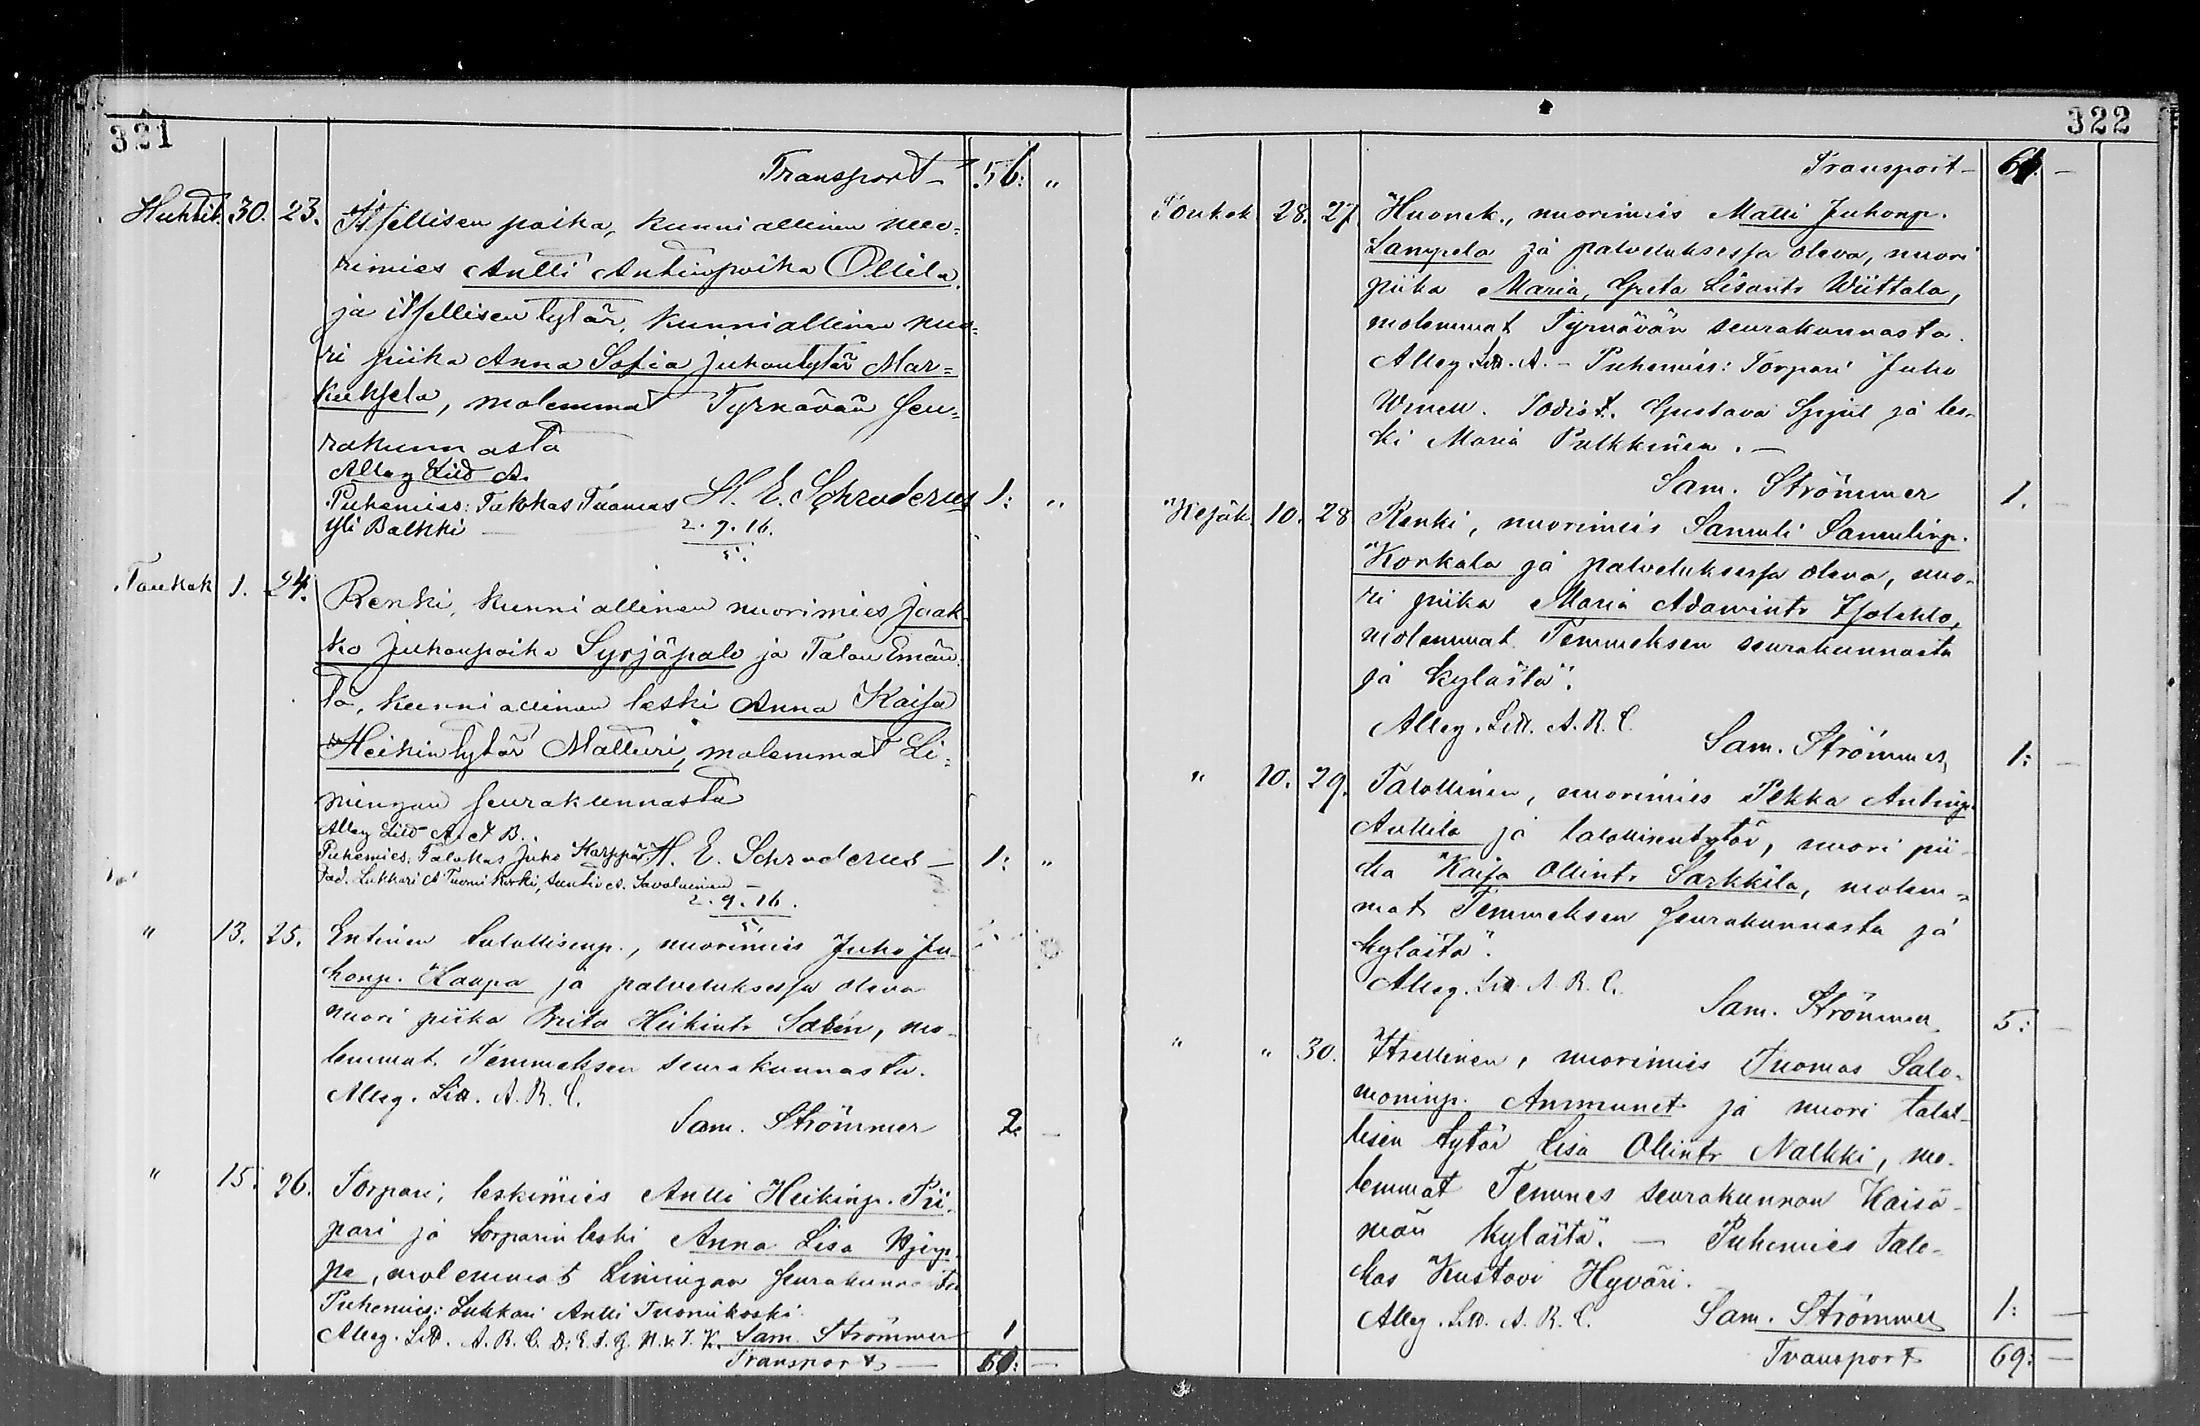 321
Transport – 56: "
Huhtik. 30. 23. Itsellisen poika, kunniallinen nuo-
rimies Antti Antinpoika Ollila
ja itsellisen tytär, kunniallinen nuo-
ri piika Anna Sofia Juhontytär Mar-
kuksela, molemmat Tyrnävän seu-
rakunnasta
Alleg Litt A.
Puhemies: Talokas Tuomas H. E. Schroderus 1: "
Yli Balkki – 2. 9. 16.
5.
Toukok 1. 24. Renki, kunniallinen nuorimies Jaak-
ko Juhonpoika Syrjäpalo ja Talon Emän-
tä, kunniallinen leski Anna Kaisa
Heikintytär Matturi, molemmat Li-
mingan seurakunnasta
Alleg Litt A. & B.
Puhemies: Talokas Juho Karppa H. E. Schroderus – 1: "
Tod. Lukkari A Tuomikoski, Suntio A. Savolainen –
2. 9. 16.
5.
" 13. 25. Entinen talollisenp., nuorimies Juho Ju-
honp. Haapa ja palveluksessa oleva
nuori piika Brita Heikintr Salén, mo-
lemmat Temmeksen seurakunnasta.
Alleg. Litt. A. B. C.
Sam. Strömmer 2. –
" 15. 26. Torpari, leskimies Antti Heikinp. Pii-
pari ja torparin leski Anna Lisa
, molemmat Limingan seurakunnasta
Puhemies: Lukkari Antti Tuomikoski.
Alleg. Litt. A. B. C. D. E. F. G. H. I. K. Sam. Strömmer 1
Transport – 61: –
322
Transport – 61: –
Toukok 28. 27. Huonek., nuorimies Matti Juhonp.
Lampela ja palveluksessa oleva, nuori
piika Maria Greta Lisantr Wiittala,
molemmat Tyrnävän seurakunnasta.
Alleg. Litt. A. – Puhemies: Torpari Juho
Todist. Gustava ja les-
ki Maria Pulkkinen. –
Sam. Strömmer 1. –
Kesäk. 10. 28. Renki, nuorimies Samuli Samulinp.
Korkala ja palveluksessa oleva, nuo-
ri piika Maria Adamintr Isolehto,
molemmat Temmeksen seurakunnasta
ja kylästä.
Alleg. Litt. A. B. C.
Sam. Strömmer 1: –
" 10. 29. Talollinen, nuorimies Pekka Antinp.
Anttila ja talollisentytär, nuori pii-
ka Kaisa Ollintr Sarkkila, molem-
mat Temmeksen seurakunnasta ja
kylästä.
Alleg. Litt A. B. C.
Sam. Strömmer 5: –
" " 30. Itsellinen, nuorimies Tuomas Salo-
moninp. Ammunet ja nuori talol-
lisen tytär Lisa Ollintr Nalkki, mo-
lemmat Temmes seurakunnan Haisä-
män kylästä. – Puhemies Talo-
kas Kustovi Hyväri.
Alleg. Litt. A. B. C. Sam. Strömmer 1: –
Transport 69: –